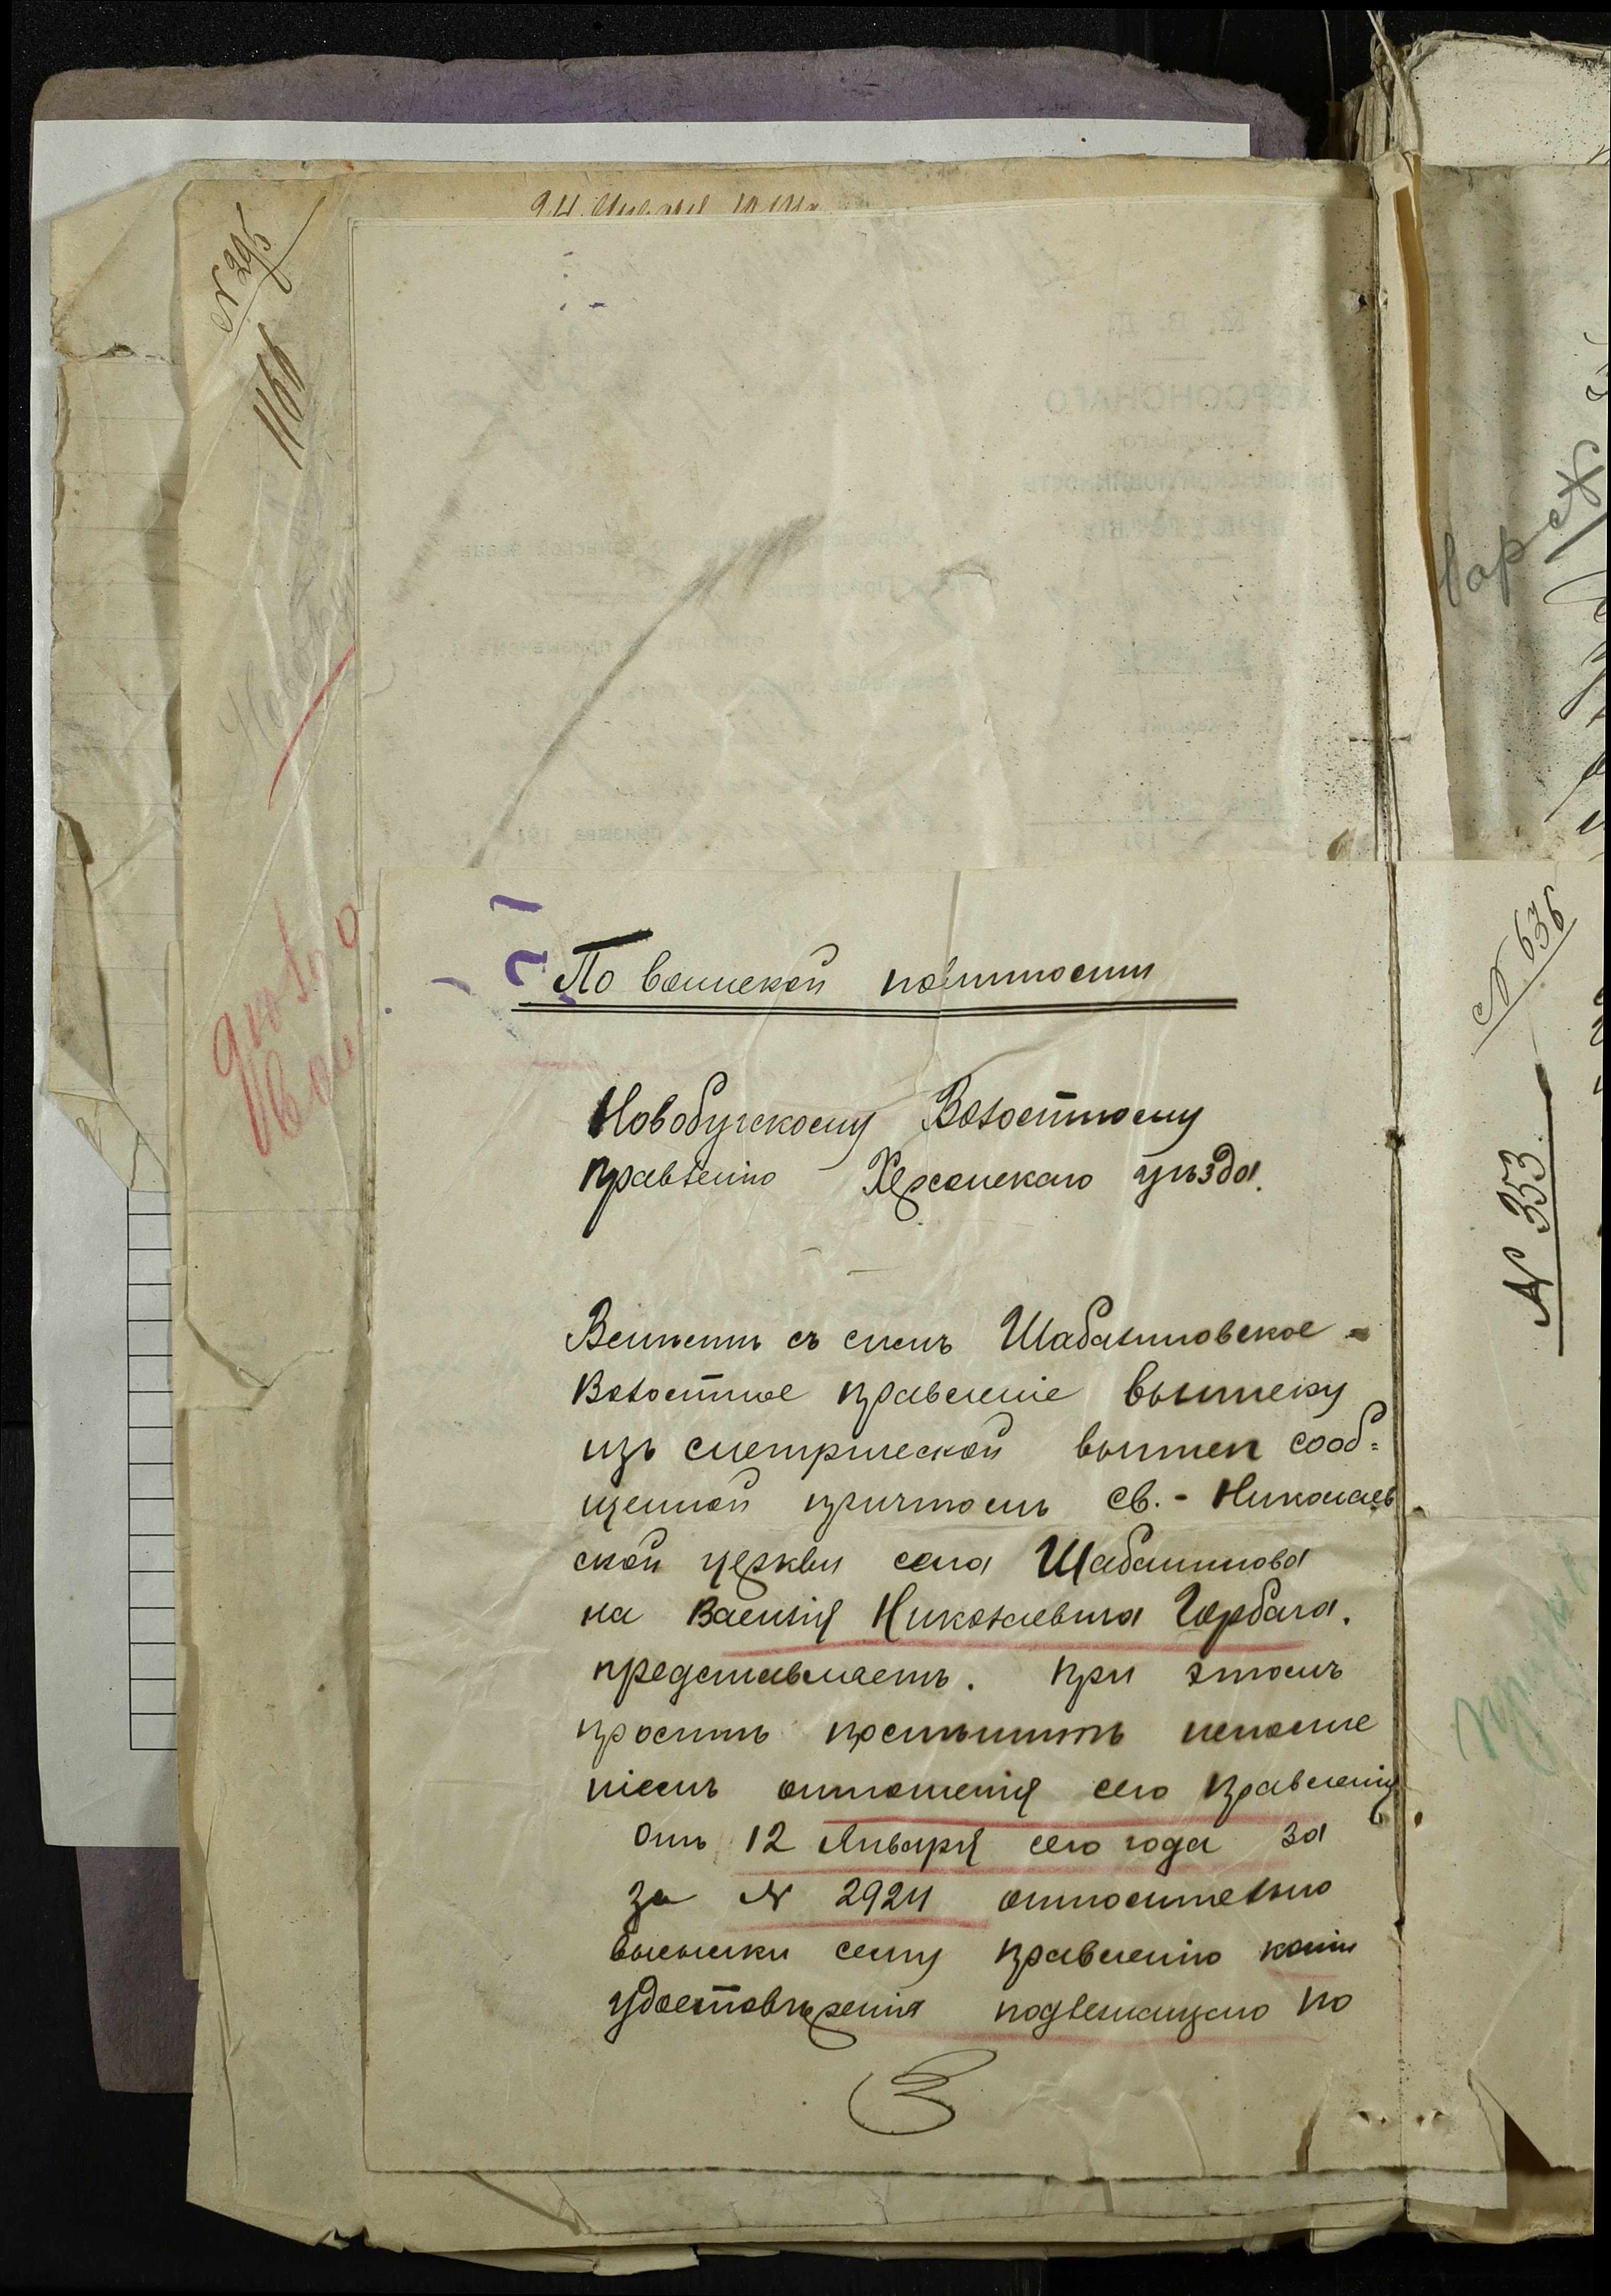 № 295
1166
По воинской повинности
Новобугскому Волостному
Правленію Херсонскаго уѣзда.
Вмѣстѣ съ симъ Шабалиновское
Волостное правленіе выписку
изъ метрической выписи сооб=
щенной причтомъ Св.-Николаев
ской церкви села Шабалинова
на Василія Николаевича Горбача.
представляетъ. При этомъ
проситъ поспѣшить исполне
ніемъ отношенія сего правленія
отъ 12 Января сего года за
за № 2924 относительно
высылки сему правленію копіи
удостовѣренія подлежащаго по
№ 636
№ 353